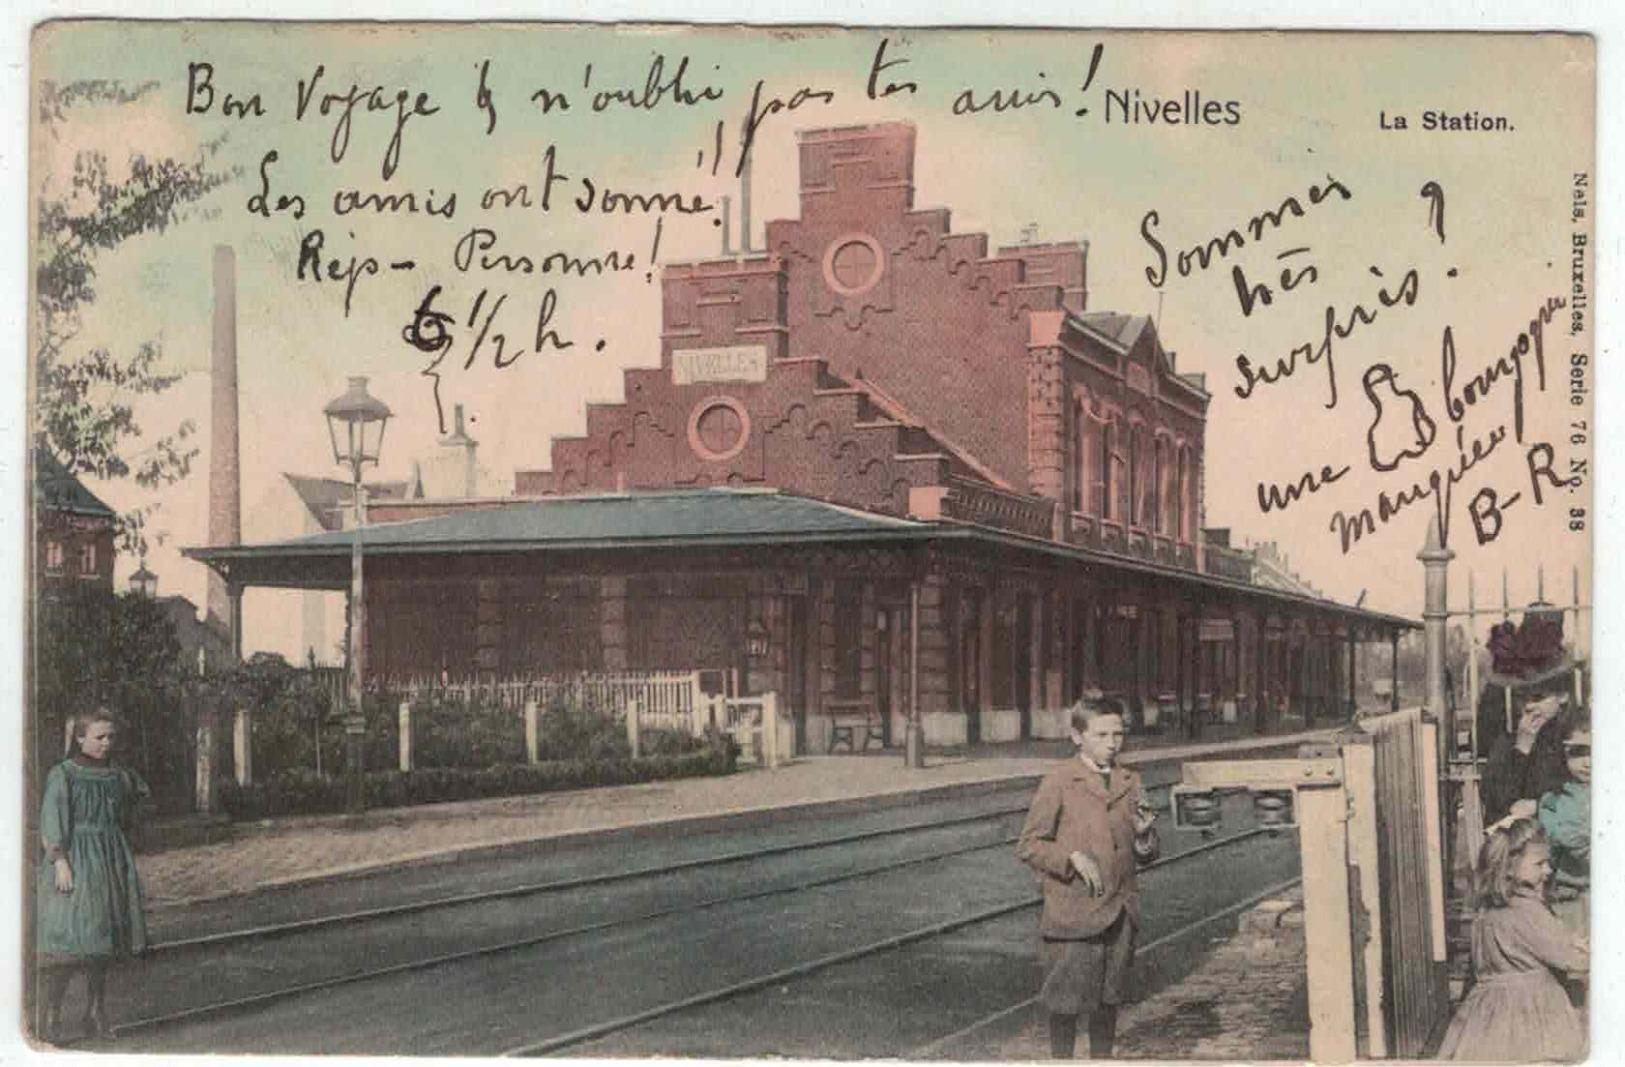 Bon Voyage & n'oublie pas tes amis!
Nivelles
La Station.
Les amis ont sonné!!
Rép- Personne!
6 1/2 h.
Sommes
très
surpris?
une bourgogne
manquée
B-R
NIVELLES
Nels, Bruxelles, Serie 76 No. 38